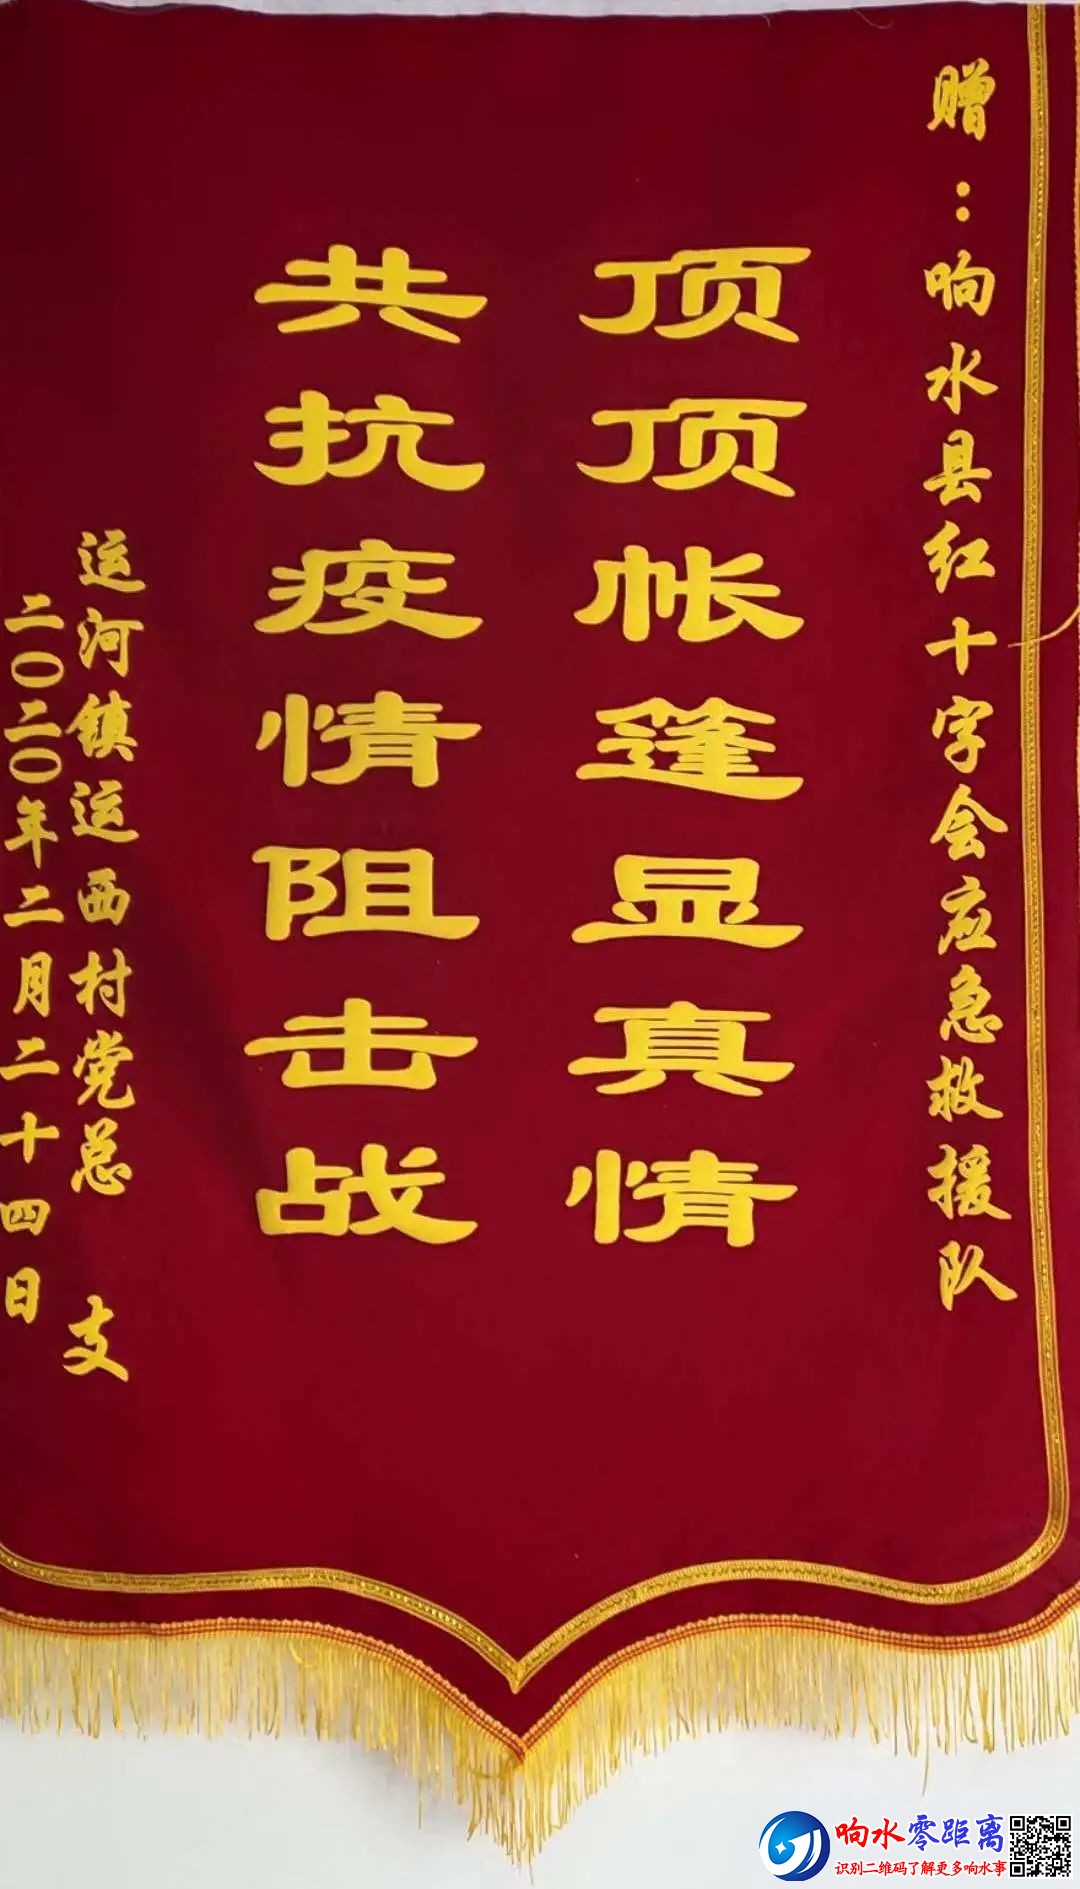 赠：响水县红十字会应急救援队
顶顶帐篷显真情
共抗疫情阻击战
运河镇运西村党总支
二〇二〇年二月二十四日
响水零距离
识别二维码了解更多响水事